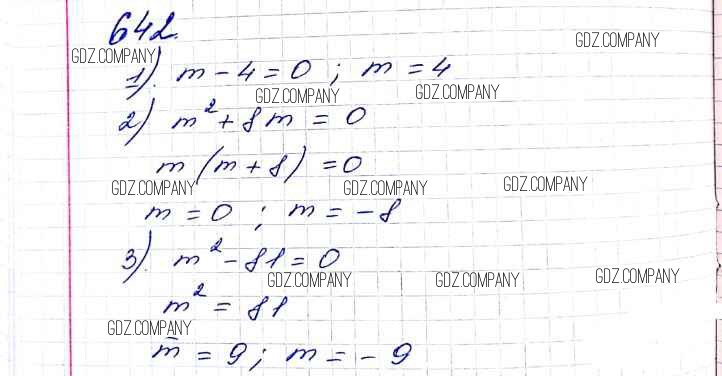 642.
GDZ.COMPANY
GDZ.COMPANY
1). m - 4 = 0 ; m = 4
GDZ.COMPANY
GDZ.COMPANY
2) m² + 8m = 0
m (m + 8) = 0
GDZ.COMPANY
GDZ.COMPANY
GDZ.COMPANY
m = 0 ; m = - 8
3). m² - 81 = 0
GDZ.COMPANY
GDZ.COMPANY
GDZ.COMPANY
m² = 81
GDZ.COMPANY
m = 9 ; m = - 9